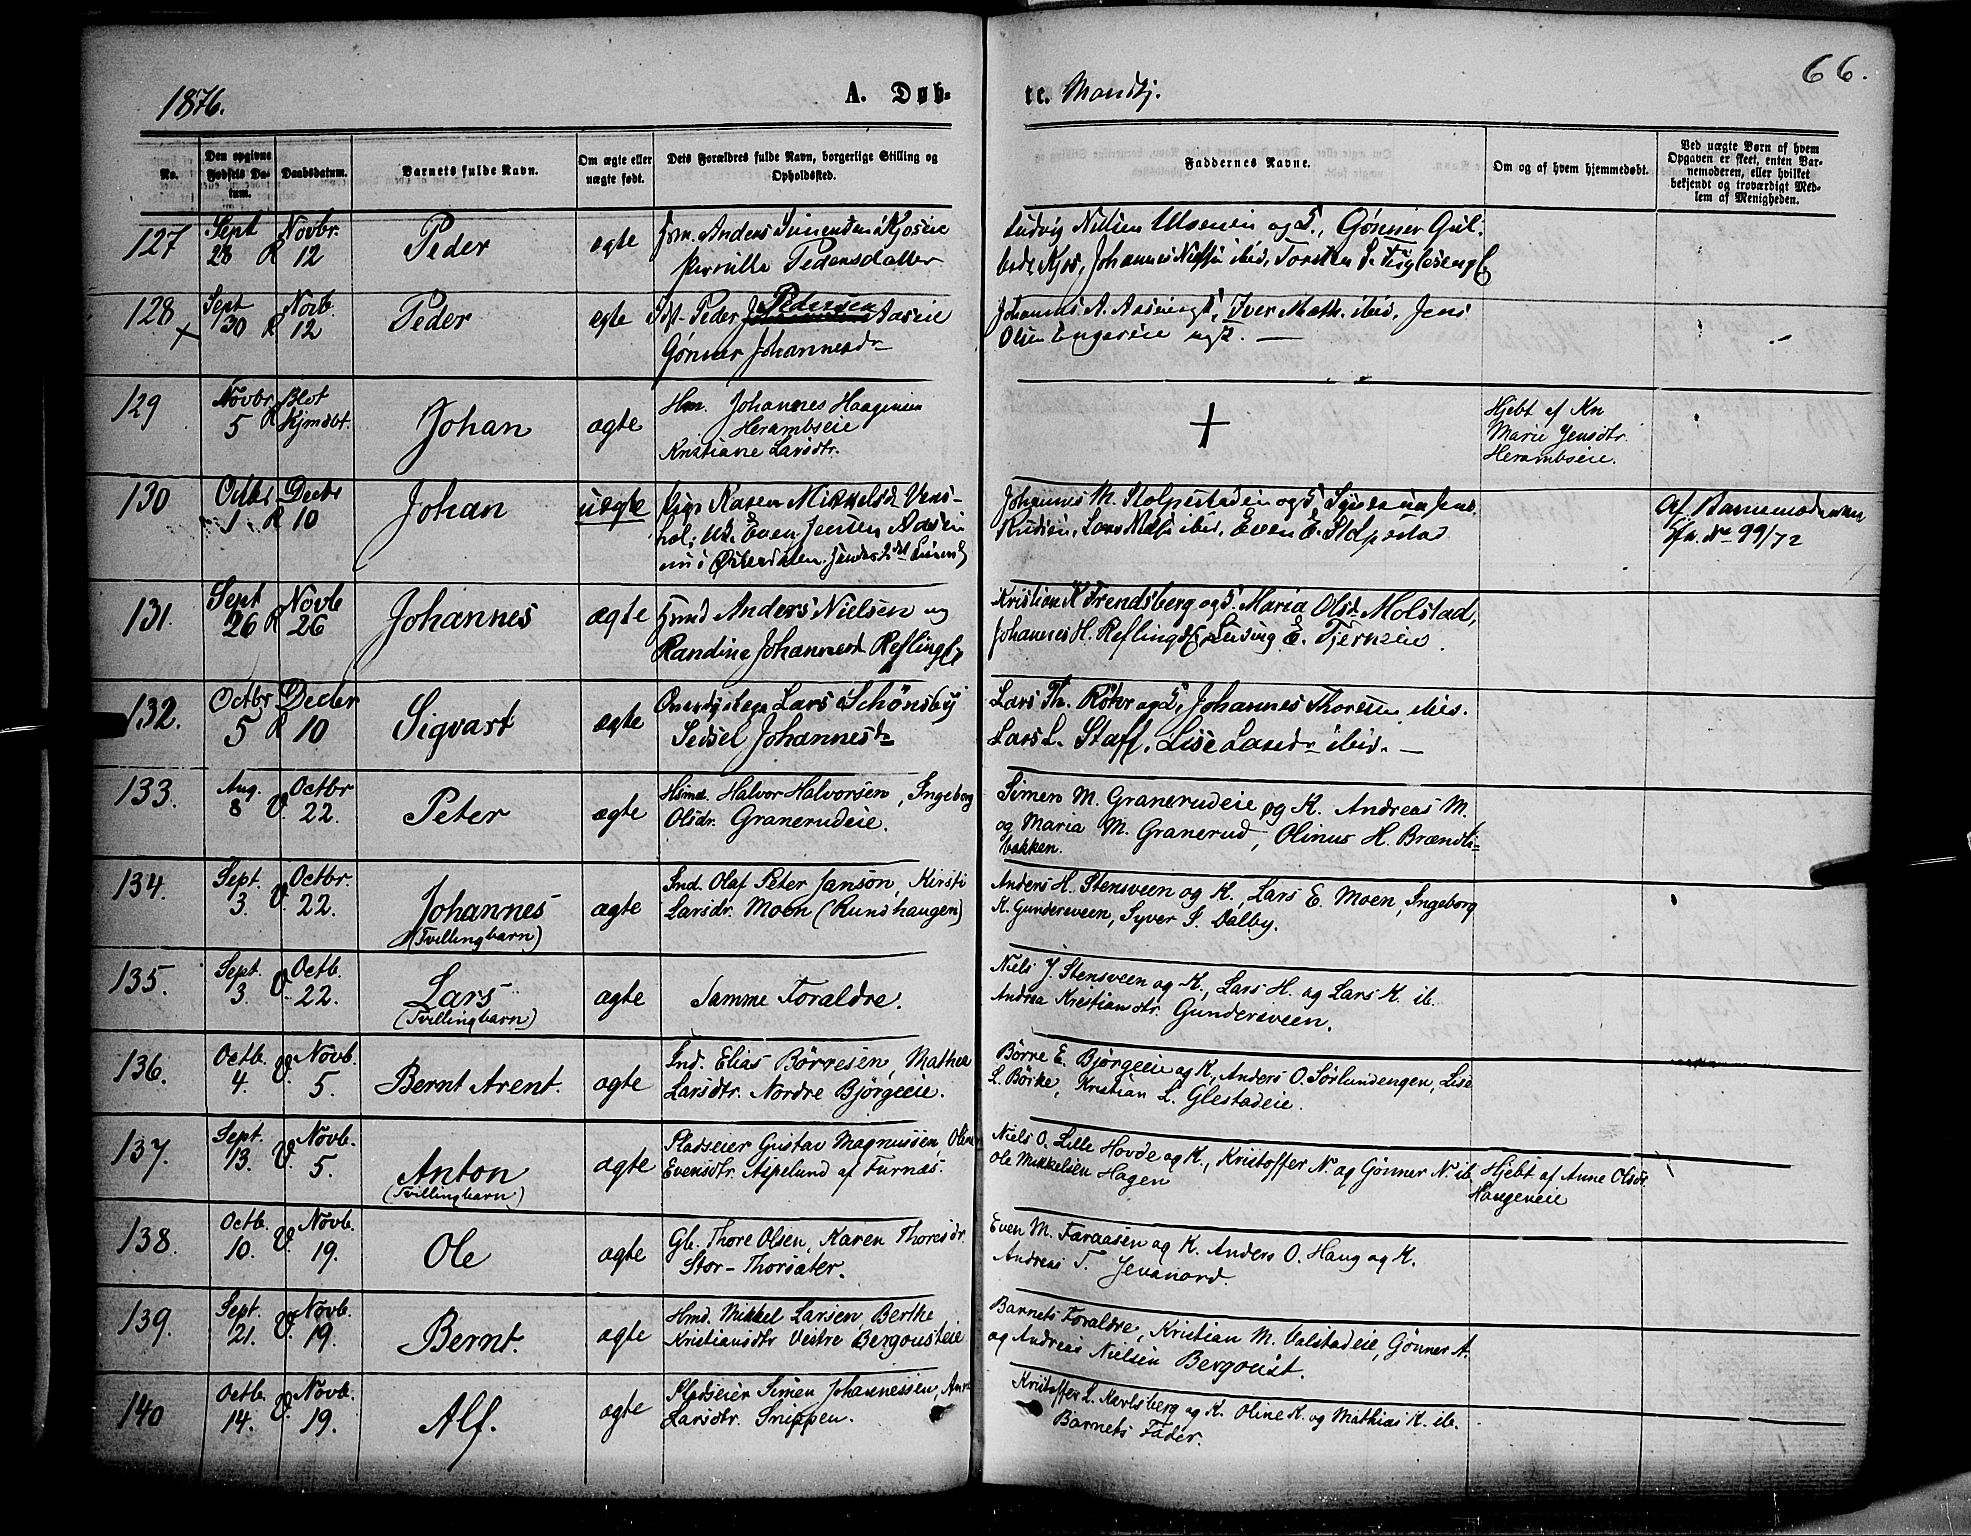 1876.
A. Døb-
te. Mandkj.
66.
No.
Den opgivne Fødsels Datum.
Daabsdatum.
Barnets fulde Navn.
Om ægte eller uægte født.
Dets Forældres fulde Navn, borgerlige Stilling og Opholdssted.
Faddernes Navne.
Om og af hvem hjemmedøbt.
Ved uægte Børn af hvem Opgaven er skeet, enten Barnemoderen, eller hvilket bekjendt og troværdigt Medlem af Menigheden.
127 Sept 28 R Novbr. 12 Peder ægte
Anders Simensen Kjoseie
Pernille Pedersdatter
Ludvig Nielsen og Gønner Gulbrds. Kjos, Johannes ibid,
128 Sept 30 R Novb. 12 Peder ægte
Peder Pedersen Aaseie
Gønner Johannesdr
Johannes A. Aaseie, Iver Math. ibid, Jens
Olsen Engeseie
129 Novbr 5 R Blot Hjmdbt. Johan ægte
Hm. Johannes Haagensen
Herambseie
Kristiane Larsdtr.
Hjdbt af Kn
Marie Jensdtr.
Herambseie.
130 Octbr 1 R Decbr 10 Johan uægte
Pige Karen Mikkelsd.
Uk. Even Jensen
i Østerdalen.
Johannes M. Stolpestadeie
Lars ibid, Even E. Stolpestad
Af Barnemoderen
No 99/72
131. Sept 26 R Novb 26 Johannes ægte
Anders Nielsen og
Randine Johannesd. Reflingse
Kristian K. Frendsberg og Maria Olsd. Molstad,
Johannes H. Reflings E. Tjernseie.
132. Octbr 5 R Decbr 10 Sigvart ægte
Lars Schönsby
Sidsel Johannesdr
Lars Th. Røhr og Johannes Thoresen ibid.
Lars L. Staff. Lise Larsdr ibid.
133. Aug. 8 V. Octbr 22. Peter ægte
Hsmd. Halvor Halvorsen, Ingeborg
Olsdr. Granerudeie.
Simen M. Granerudeie og K. Andreas M.
og Maria M. Granerud, Olinus H. Brændli-
bakken.
134. Sept. 3. V. Octbr. 22. Johannes ægte
(Tvillingbarn)
Ind. Olaf Peter Janson, Kirsti
Larsdr. Moen (Rundhaugen)
Anders H. Stensveen og K., Lars E. Moen, Ingeborg
K. Gundersveen, Syver S. Dalby.
135. Sept. 3. V. Octb. 22. Lars ægte
(Tvillingbarn)
Samme Foraldre.
Niels J. Stensveen og K., Lars H. og Lars K. ib.
Andrea Kristiansdtr. Gundersveen.
136. Octb. 4. V. Novb. 5. Bernt Arent. ægte
Ind. Elias Börresen, Mathea
Larsdtr. Nordre Bjørgeeie.
Børre E. Bjørgeeie og K., Anders O. Sørlundengen, Lise
L. Börke, Kristian L. Glestadeie.
137. Sept. 13. V. Novb. 5. Anton ægte
(Tvillingbarn)
Pladseier Gustav Magnussen, Oline
Evensdtr. Aspelund af Furnæs.
Niels O. Lille Hovde og K., Kristoffer N. og Gønner N. ib.
Ole Mikkelsen Hagen
Hjebt af Anne Olsdr.
Haugeneie
138. Octb. 10. V. Novb. 19. Ole ægte
Gb. Thore Olsen, Karen Thoresdr.
Stor-Thorsæter.
Even M. Faraasen og K. Anders O. Haug og K.
Andreas T. Jevanord.
139. Sept. 21. V. Novb. 19. Bernt. ægte
Hmd. Mikkel Larsen, Berthe
Kristiansdtr Vestre Bergquisteie
Barnets Foraldre, Kristian M. Valstadeie, Gønner A.
og Andreas Nielsen Bergquist.
140 Octb. 14. V. Novb. 19. Alf. ægte
Pladseier Simen Johannessen,
Larsdtr. Snippen.
Kristoffer L. Karlsberg og K. Oline K. og Mathias K. ib.
Barnets Fader.